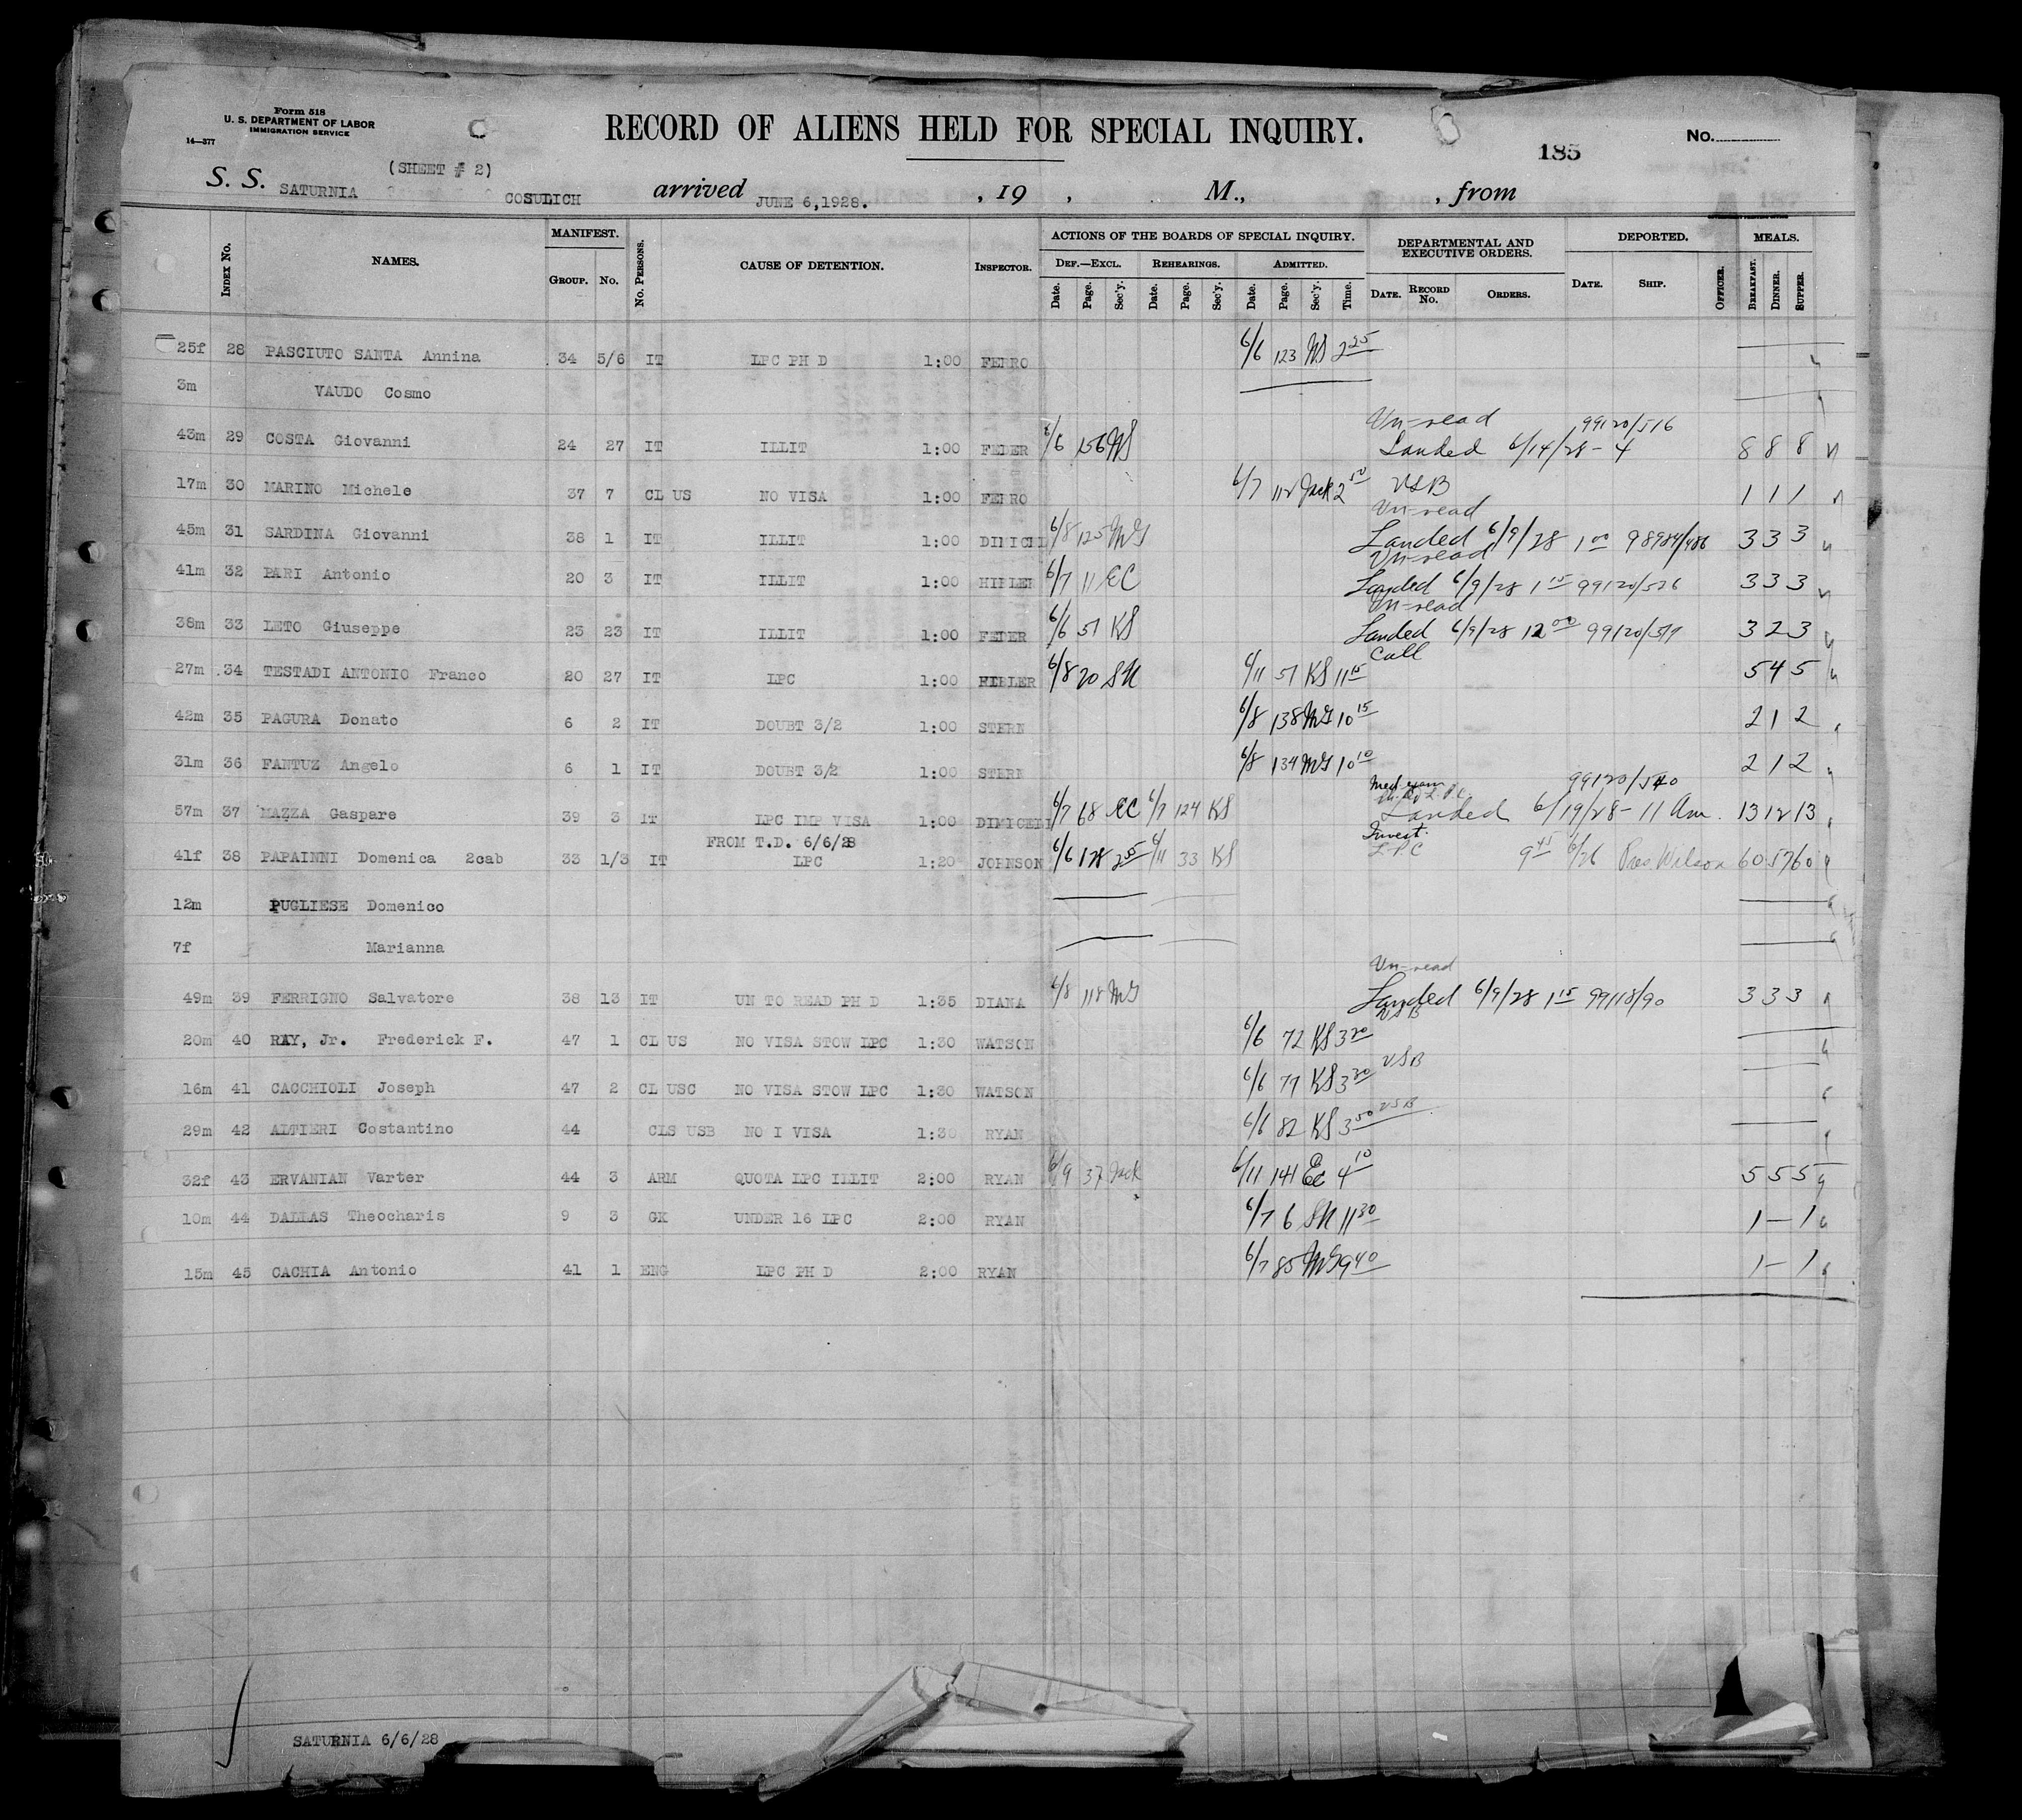 Form 518
U. S. DEPARTMENT OF LABOR
IMMIGRATION SERVICE
14—377
RECORD OF ALIENS HELD FOR SPECIAL INQUIRY.
185
No.
(SHEET # 2)
S. S. SATURNIA COSULICH arrived JUNE 6,1928. , 19 , M., , from
Index No. NAMES. MANIFEST. GROUP. No. No. Persons. CAUSE OF DETENTION. INSPECTOR. ACTIONS OF THE BOARDS OF SPECIAL INQUIRY. DEPARTMENTAL AND EXECUTIVE ORDERS. DEPORTED. MEALS.
DEF.—EXCL. REHEARINGS. ADMITTED.
Date. Page. Sec'y. Date. Page. Sec'y. Date. Page. Sec'y. Time. DATE. RECORD No. ORDERS. DATE. SHIP. OFFICER. BREAKFAST. DINNER. SUPPER.
25f 28 PASCIUTO SANTA Annina 34 5/6 IT LPC PH D 1:00 FERRO 6/6 123 WS 2 25
3m VAUDO Cosmo
Un-read 99120/516
43m 29 COSTA Giovanni 24 27 IT ILLIT 1:00 FEDER 6/6 156 WS Landed 6/14/28 - 4 8 8 8
17m 30 MARINO Michele 37 7 CL US NO VISA 1:00 FERRO 6/7 112 Jack 2 50 USB 1 1 1
Un-read
45m 31 SARDINA Giovanni 38 1 IT ILLIT 1:00 DIMICELI 6/8 125 MG Landed 6/9/28 1 00 98984/486 3 3 3
Un-read
41m 32 PARI Antonio 20 3 IT ILLIT 1:00 HIBLER 6/7 11 EC Landed 6/9/28 1 15 99120/526 3 3 3
Un-read
38m 33 LETO Giuseppe 23 23 IT ILLIT 1:00 FEDER 6/6 51 KS Landed 6/9/28 12 00 99120/517 3 2 3
Call
27m 34 TESTADI ANTONIO Franco 20 27 IT LPC 1:00 HIBLER 6/8 20 SN 6/11 51 KS 11 15 5 4 5
42m 35 PAGURA Donato 6 2 IT DOUBT 3/2 1:00 STERN 6/8 138 MG 10 15 2 1 2
31m 36 FANTUZ Angelo 6 1 IT DOUBT 3/2 1:00 STERN 6/8 134 MG 10 10 2 1 2
Med exam 99120/540
57m 37 MAZZA Gaspare 39 3 IT LPC IMP VISA 1:00 DIMICELI 6/7 68 EC 6/7 124 KS Landed 6/19/28 - 11 Am. 13 12 13
FROM T.D. 6/6/28 Invest.
41f 38 PAPAINNI Domenica 2cab 33 1/3 IT LPC 1:20 JOHNSON 6/6 128 2 55 6/11 33 KS LPC 9 45 6/26 Pres Wilson 60 57 60
12m PUGLIESE Domenico
7f Marianna
Un-read
49m 39 FERRIGNO Salvatore 38 13 IT UN TO READ PH D 1:35 DIANA 6/8 118 MG Landed 6/9/28 1 15 99118/90 3 3 3
USB
20m 40 RAY, Jr. Frederick F. 47 1 CL US NO VISA STOW LPC 1:30 WATSON 6/6 72 KS 3 20
16m 41 CACCHIOLI Joseph 47 2 CL USC NO VISA STOW LPC 1:30 WATSON 6/6 77 KS 3 30 USB
29m 42 ALTIERI Costantino 44 CLS USB NO I VISA 1:30 RYAN 6/6 82 KS 3 50 USB
32f 43 ERVANIAN Varter 44 3 ARM QUOTA LPC ILLIT 2:00 RYAN 6/9 37 Jack 6/11 141 Ec 4 10 5 5 5
10m 44 DALLAS Theocharis 9 3 GK UNDER 16 LPC 2:00 RYAN 6/7 6 SN 11 30 1 - 1
15m 45 CACHIA Antonio 41 1 ENG LPC PH D 2:00 RYAN 6/7 85 MG 9 40 1 - 1
SATURNIA 6/6/28